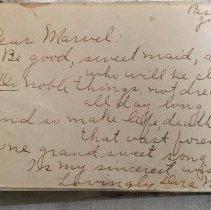 Dear Marvel:
Be good, sweet maid, a
who will be cl
Do noble things, not dre
all day long
And so make life death
that vast forev
One grand sweet song
Is my sincerest wis
Lovingly Dora